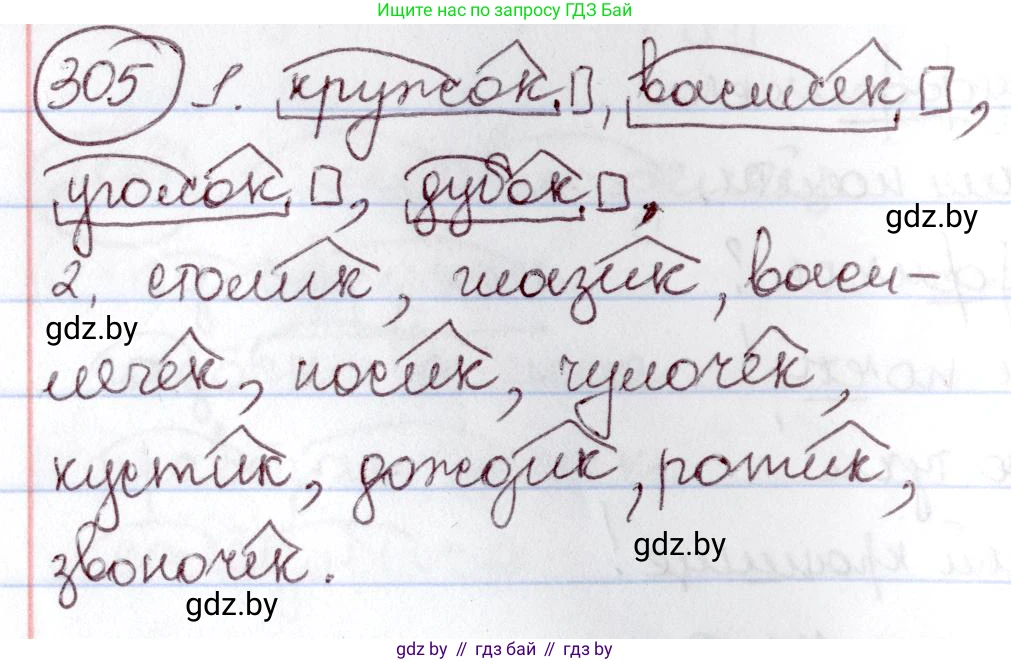 Ищите нас по запросу ГДЗ Бай
305 1. кружок, василёк,
уголок, дубок,
gdz.by
2. столик, глазик, васи-
gdz.by
лёчек, носик, чулочек,
кустик, дождик, ротик,
gdz.by
звоночек.
gdz.by
gdz.by // гдз бай // гдз by